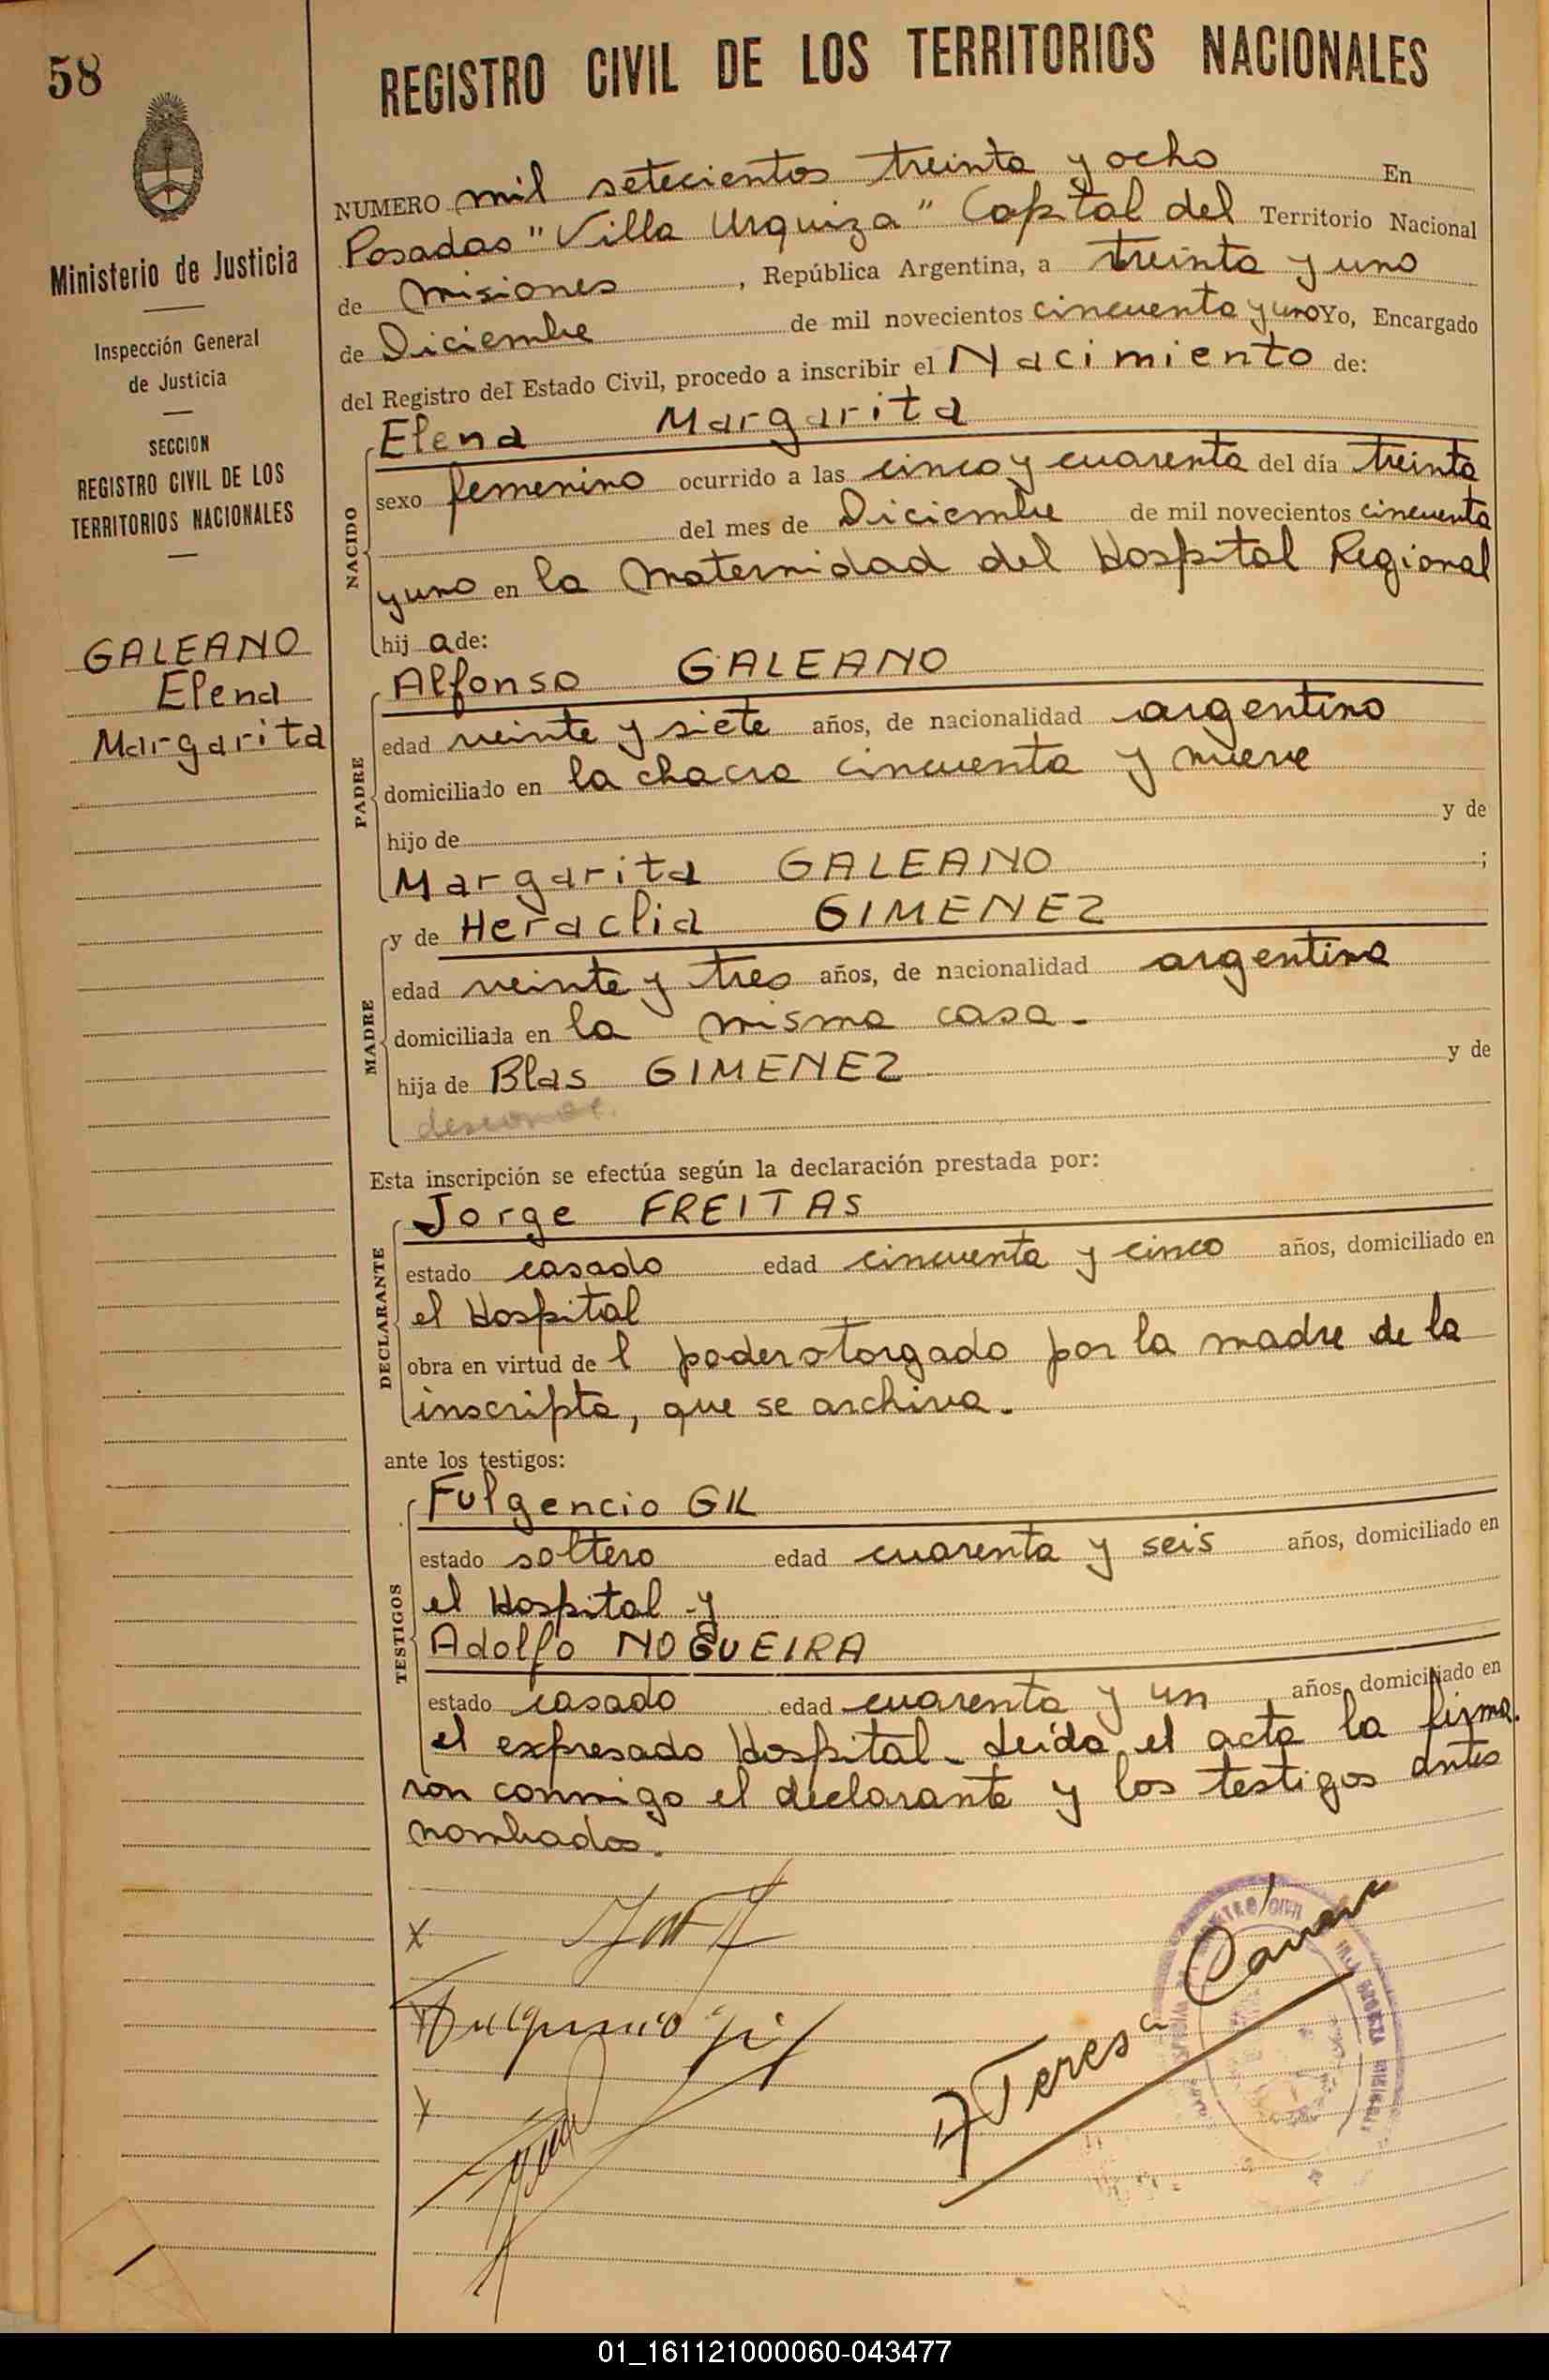 58
REGISTRO CIVIL DE LOS TERRITORIOS NACIONALES
Ministerio de Justicia
Inspección General
de Justicia
SECCION
REGISTRO CIVIL DE LOS
TERRITORIOS NACIONALES
GALEANO
Elena
Margarita
NUMERO mil setecientos treinta y ocho En
Posadas "Villa Urquiza" Capital del Territorio Nacional
de Misiones, República Argentina, a treinta y uno
de Diciembre de mil novecientos cincuenta y uno Yo, Encargado
del Registro del Estado Civil, procedo a inscribir el Nacimiento de:
NACIDO
Elena Margarita
sexo femenino ocurrido a las cinco y cuarenta del día treinta
del mes de Diciembre de mil novecientos cincuenta
y uno en la Maternidad del Hospital Regional
hij a de:
PADRE
Alfonso GALEANO
edad veinte y siete años, de nacionalidad argentino
domiciliado en la chacra cincuenta y nueve
hijo de y de
Margarita GALEANO ;
MADRE
y de Heraclia GIMENEZ
edad veinte y tres años, de nacionalidad argentina
domiciliada en la misma casa.
hija de Blas GIMENEZ y de
desconoc.
Esta inscripción se efectúa según la declaración prestada por:
DECLARANTE
Jorge FREITAS
estado casado edad cincuenta y cinco años, domiciliado en
el Hospital
obra en virtud de l poder otorgado por la madre de la
inscripta, que se archiva.
ante los testigos:
TESTIGOS
Fulgencio GIL
estado soltero edad cuarenta y seis años, domiciliado en
el Hospital y
Adolfo NOGUEIRA
estado casado edad cuarenta y un años, domiciliado en
el expresado Hospital. Leída el acta la firma
ron conmigo el declarante y los testigos antes
nombrados.
x
Fulgencio Gil
x
Teresa Cámara
01_161121000060-043477